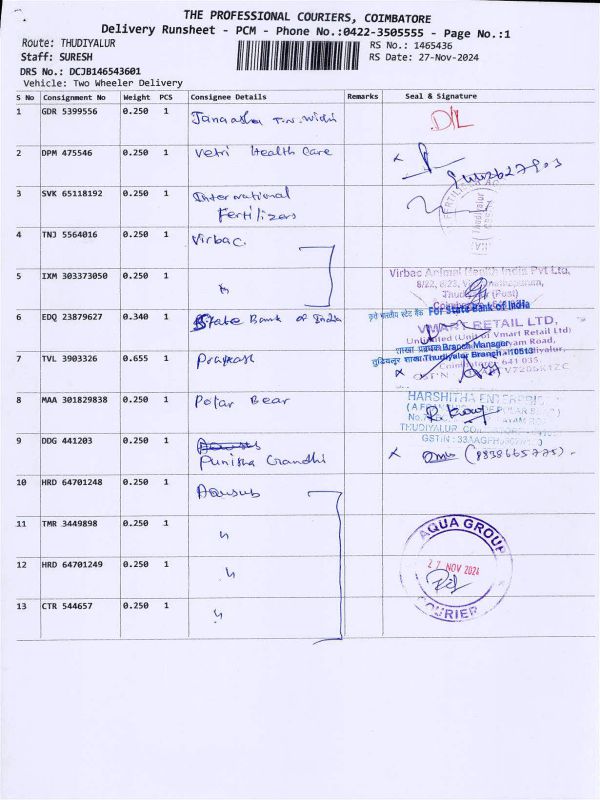 THE PROFESSIONAL COURIERS, COIMBATORE
Delivery Runsheet - PCM - Phone No.:0422-3505555 - Page No.:1
Route: THUDIYALUR
RS No.: 1465436
Staff: SURESH
RS Date: 27-Nov-2024
DRS No.: DCJB146543601
Vehicle: Two Wheeler Delivery
S No Consignment No Weight PCS Consignee Details Remarks Seal & Signature
1 GDR 5399556 0.250 1 T.N. D/L
2 DPM 475546 0.250 1 Vetri Health Care x
3 SVK 65118192 0.250 1 International
Fertilizers
4 TNJ 5564016 0.250 1 Virbac.
Virbac Animal Health India Pvt Ltd,
5 IXM 303373050 0.250 1 "
8/22, 8/23,
(Post)
For State Bank of India
6 EDQ 23879627 0.340 1 State Bank of India
VMART RETAIL LTD,
(Unit of Vmart Retail Ltd)
Branch Manager
7 TVL 3903326 0.655 1 Prakash
Thudiyalur Branch - 10513
641 035.
x
8 MAA 301829838 0.250 1 Polar Bear
HARSHITHA ENTERPRISES
THUDIYALUR
GSTIN :
9 DDG 441203 0.250 1
Punitha Gandhi x
10 HRD 64701248 0.250 1 Aquasub
11 TMR 3449898 0.250 1 "
AQUA GROUP
12 HRD 64701249 0.250 1 "
27 NOV 2024
13 CTR 544657 0.250 1 "
COURIER